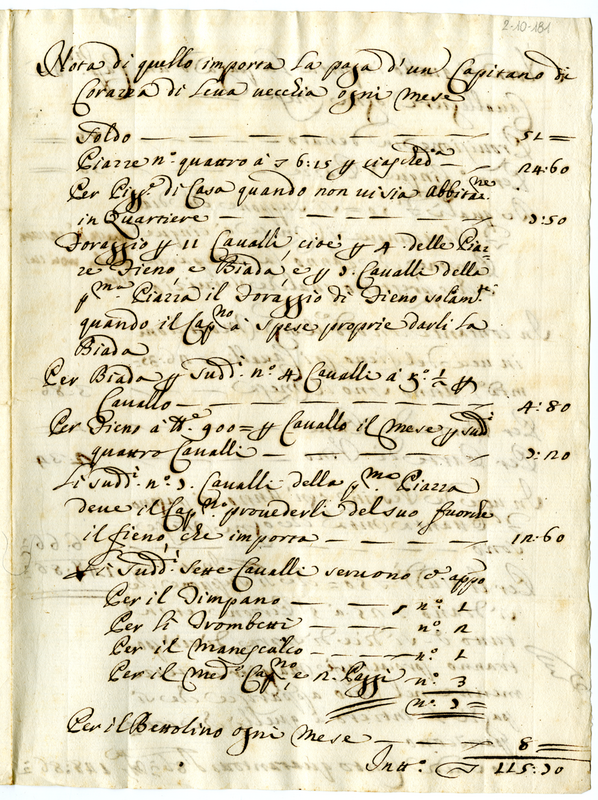 2-10-181
Nota di quello importa La paga d'un Capitano di
Corazza di Leva vecchia ogni Mese
Soldo — 51 =
Piazze n.º quattro à 6:15 p ciasched.ª — 24:60
Per Pigg.e di Casa quando non vi sia Abbitaz.ne
in Quartiere — 7:50
Foraggio p 11 Cavalli, cioè p 4. delle Piaz-
ze Fieno, e Biada, e p 7. Cavalli della
p.ma Piazza il Foraggio di Fieno solam.te
quando il Cap.no à Spese proprie darli La
Biada
Per Biada p Sudd.i n.º 4 Cavalli à p
Cavallo — 4:80
Per Fieno à 900 = p Cavallo il Mese p Sud.i
quattro Cavalli — 7:20
Li Sudd.i n.º 7. Cavalli della p.ma Piazza
deve il Cap.no provederli del suo fuorche
il fieno, che importa — 12:60
Li Sudd.i Sette Cavalli servono c.e appo
Per il Timpano — n.º 1
Per li Trombetti — n.º 2
Per il Manescalco — n.º 1
Per il Med.º Cap.no, e 2. Paggi n.º 3
n.º 7 =
Per il Bettolino ogni Mese — 8 =
In tt.º 115:70